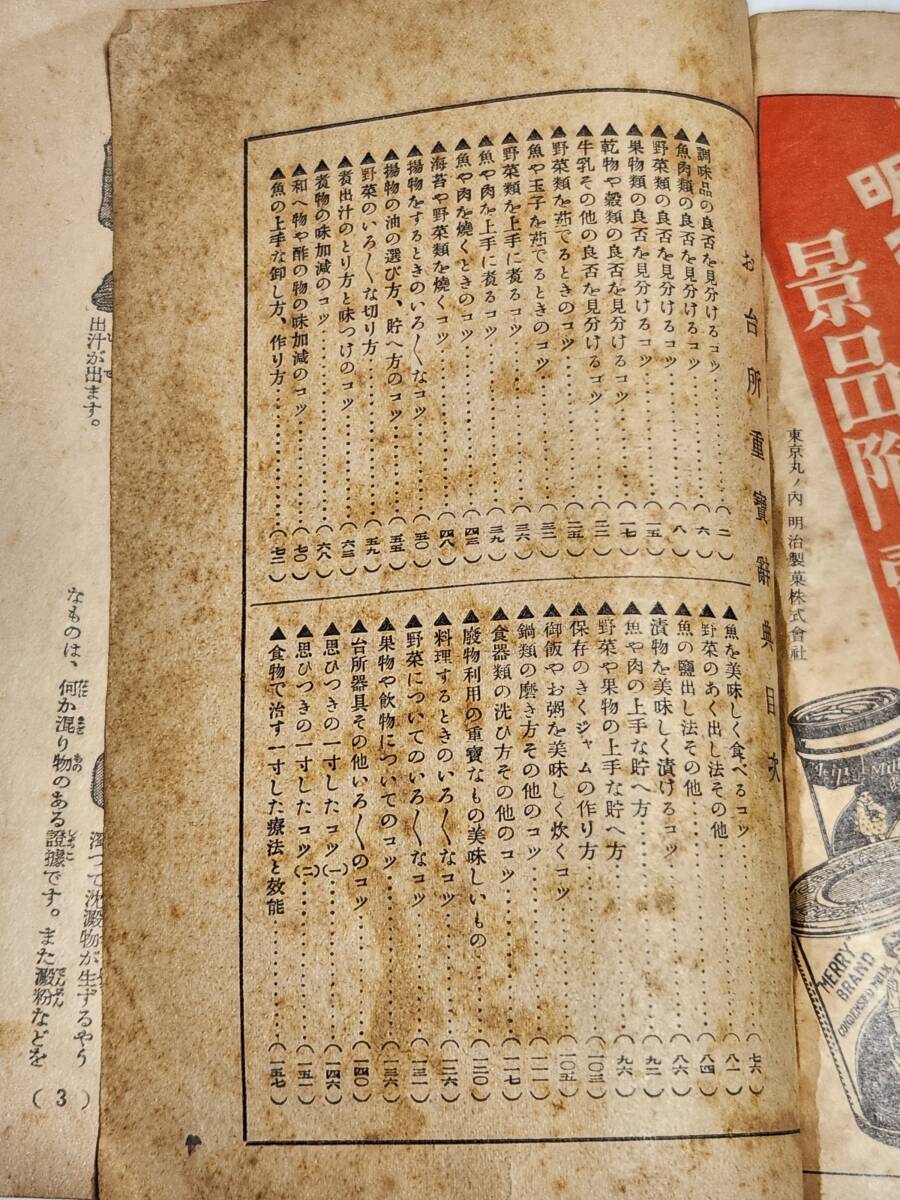 明
景品附
東京丸ノ内 明治製菓株式會社
MERRY
BRAND
CONDENSED MILK
お台所重寶辭典目次
▲調味品の良否を見分けるコツ……(二)
▲魚肉類の良否を見分けるコツ……(六)
▲野菜類の良否を見分けるコツ……(八)
▲果物類の良否を見分けるコツ……(一五)
▲乾物や穀類の良否を見分けるコツ……(一七)
▲牛乳その他の良否を見分けるコツ……(二二)
▲野菜類を茹でるときのコツ……(二五)
▲魚や玉子を茹でるときのコツ……(三二)
▲野菜類を上手に煮るコツ……(三六)
▲魚や肉を上手に煮るコツ……(三九)
▲魚や肉を燒くときのコツ……(四三)
▲海苔や野菜類を燒くコツ……(四八)
▲揚物をするときのいろ〱なコツ……(五〇)
▲揚物の油の選び方、貯へ方のコツ……(五五)
▲野菜のいろ〱な切り方……(五九)
▲煮出汁のとり方と味つけのコツ……(六三)
▲煮物の味加減のコツ……(六八)
▲和へ物や酢の物の味加減のコツ……(七〇)
▲魚の上手な卸し方、作り方……(七三)
▲魚を美味しく食べるコツ……(七六)
▲野菜のあく出し法その他……(八一)
▲魚の鹽出し法その他……(八四)
▲漬物を美味しく漬けるコツ……(八六)
▲魚や肉の上手な貯へ方……(九二)
▲野菜や果物の上手な貯へ方……(九六)
▲保存のきくジャムの作り方……(一〇三)
▲御飯やお粥を美味しく炊くコツ……(一〇五)
▲鍋類の磨き方その他のコツ……(一一一)
▲食器類の洗ひ方その他のコツ……(一一七)
▲廢物利用の重寶なもの美味しいもの……(一二〇)
▲料理するときのいろ〱なコツ……(一二六)
▲野菜についてのいろ〱なコツ……(一三一)
▲果物や飲物についてのコツ……(一三六)
▲台所器具その他いろ〱のコツ……(一四〇)
▲思ひつきの一寸したコツ(一)……(一四六)
▲思ひつきの一寸したコツ(二)……(一五一)
▲食物で治す一寸した療法と效能……(一五七)
出汁が出ます。
濁つて沈澱物が生ずるやう
なものは、何か混り物のある證據です。また澱粉などを
(3)